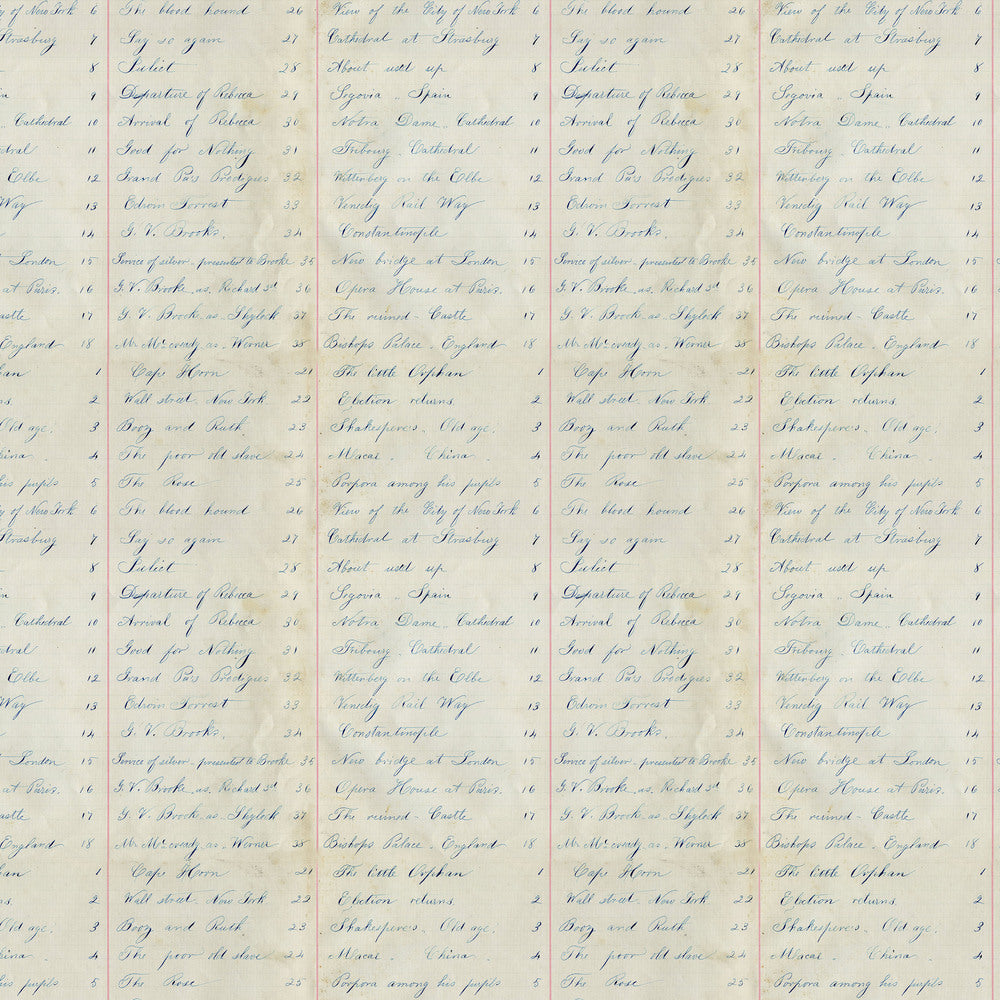 y of New York 6 The blood hound 26 View of the City of New York 6 The blood hound 26 View of the City of New York 6
Strasburg 7 Say so again 27 Cathedral at Strasburg 7 Say so again 27 Cathedral at Strasburg 7
8 Juliet 28 About used up 8 Juliet 28 About used up 8
9 Departure of Rebecca 29 Segovia .. Spain 9 Departure of Rebecca 29 Segovia .. Spain 9
.. Cathedral 10 Arrival of Rebecca 30 Notra Dame .. Cathedral 10 Arrival of Rebecca 30 Notra Dame .. Cathedral 10
dral 11 Good for Nothing 31 Fribourg . Cathedral 11 Good for Nothing 31 Fribourg . Cathedral 11
Elbe 12 Grand Pa's Prodigies 32 Wittenberg on the Elbe 12 Grand Pa's Prodigies 32 Wittenberg on the Elbe 12
Way 13 Edwin Forrest 33 Venedig Rail Way 13 Edwin Forrest 33 Venedig Rail Way 13
14 G. V. Brooks. 34 Constantinople 14 G. V. Brooks. 34 Constantinople 14
t London 15 Service of silver - presented to Brooke 35 New bridge at London 15 Service of silver - presented to Brooke 35 New bridge at London 15
at Paris. 16 G. V. Brooke . as . Richard 3rd 36 Opera House at Paris. 16 G. V. Brooke . as . Richard 3rd 36 Opera House at Paris. 16
astle 17 G. V. Brook . as . Shylock 37 The ruined - Castle 17 G. V. Brook . as . Shylock 37 The ruined - Castle 17
England 18 Mr McCready as . Werner 38 Bishops Palace . England 18 Mr McCready as . Werner 38 Bishops Palace . England 18
han 1 Cape Horn 21 The little Orphan 1 Cape Horn 21 The little Orphan 1
ns 2 Wall street . New York 22 Election returns 2 Wall street . New York 22 Election returns 2
Old age. 3 Booz and Ruth. 23 Shakespere's . Old age. 3 Booz and Ruth. 23 Shakespere's . Old age. 3
hina . 4 The poor old slave 24 Macai . China . 4 The poor old slave 24 Macai . China . 4
his pupils 5 The Rose 25 Porpora among his pupils 5 The Rose 25 Porpora among his pupils 5
y of New York 6 The blood hound 26 View of the City of New York 6 The blood hound 26 View of the City of New York 6
Strasburg 7 Say so again 27 Cathedral at Strasburg 7 Say so again 27 Cathedral at Strasburg 7
8 Juliet 28 About used up 8 Juliet 28 About used up 8
9 Departure of Rebecca 29 Segovia .. Spain 9 Departure of Rebecca 29 Segovia .. Spain 9
.. Cathedral 10 Arrival of Rebecca 30 Notra Dame .. Cathedral 10 Arrival of Rebecca 30 Notra Dame .. Cathedral 10
dral 11 Good for Nothing 31 Fribourg . Cathedral 11 Good for Nothing 31 Fribourg . Cathedral 11
Elbe 12 Grand Pa's Prodigies 32 Wittenberg on the Elbe 12 Grand Pa's Prodigies 32 Wittenberg on the Elbe 12
Way 13 Edwin Forrest 33 Venedig Rail Way 13 Edwin Forrest 33 Venedig Rail Way 13
14 G. V. Brooks. 34 Constantinople 14 G. V. Brooks. 34 Constantinople 14
t London 15 Service of silver - presented to Brooke 35 New bridge at London 15 Service of silver - presented to Brooke 35 New bridge at London 15
at Paris. 16 G. V. Brooke . as . Richard 3rd 36 Opera House at Paris. 16 G. V. Brooke . as . Richard 3rd 36 Opera House at Paris. 16
astle 17 G. V. Brook . as . Shylock 37 The ruined - Castle 17 G. V. Brook . as . Shylock 37 The ruined - Castle 17
England 18 Mr McCready as . Werner 38 Bishops Palace . England 18 Mr McCready as . Werner 38 Bishops Palace . England 18
han 1 Cape Horn 21 The little Orphan 1 Cape Horn 21 The little Orphan 1
ns 2 Wall street . New York 22 Election returns 2 Wall street . New York 22 Election returns 2
Old age. 3 Booz and Ruth. 23 Shakespere's . Old age. 3 Booz and Ruth. 23 Shakespere's . Old age. 3
hina . 4 The poor old slave 24 Macai . China . 4 The poor old slave 24 Macai . China . 4
his pupils 5 The Rose 25 Porpora among his pupils 5 The Rose 25 Porpora among his pupils 5